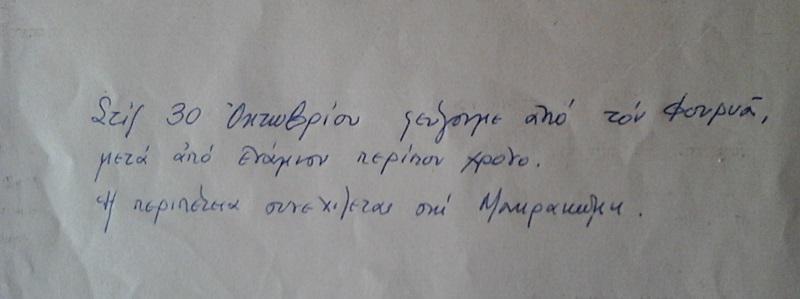 Στίς 30 Ὀκτωβρίου φεύγουμε ἀπό τόν Φουρνᾶ,
μετά ἀπό ἑνάμισυ περίπου χρόνο.
Ἡ περιπέτεια συνεχίζεται στή Μακρακώμη.